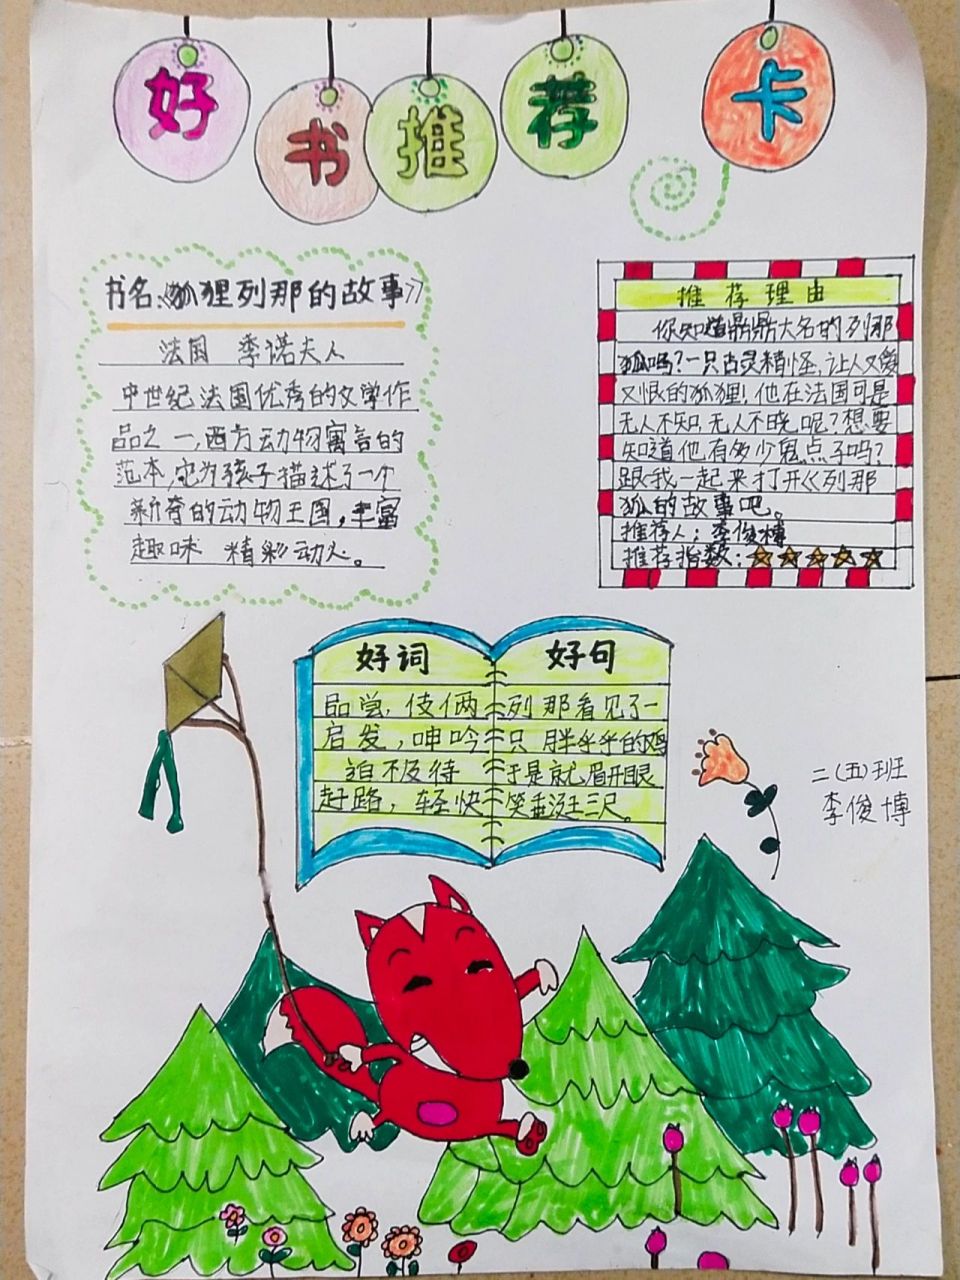 好书推荐卡
书名:《狐狸列那的故事》
法国 季诺夫人
中世纪法国优秀的文学作
品之一,西方动物寓言的
范本,它为孩子描述了一个
新奇的动物王国,丰富
趣味 精彩动人。
推荐理由
你知道鼎鼎大名的列那
狐吗?一只古灵精怪,让人又爱
又恨的狐狸!他在法国可是
无人不知,无人不晓呢?想要
知道他有多少鬼点子吗?
跟我一起来打开《列那
狐的故事吧。
推荐人:李俊博
推荐指数:☆☆☆☆☆
好词
品尝,伎俩
启发,呻吟
迫不及待
赶路,轻快
好句
列那看见了一
只胖乎乎的鸡
于是就眉开眼
笑垂涎三尺。
二(五)班
李俊博